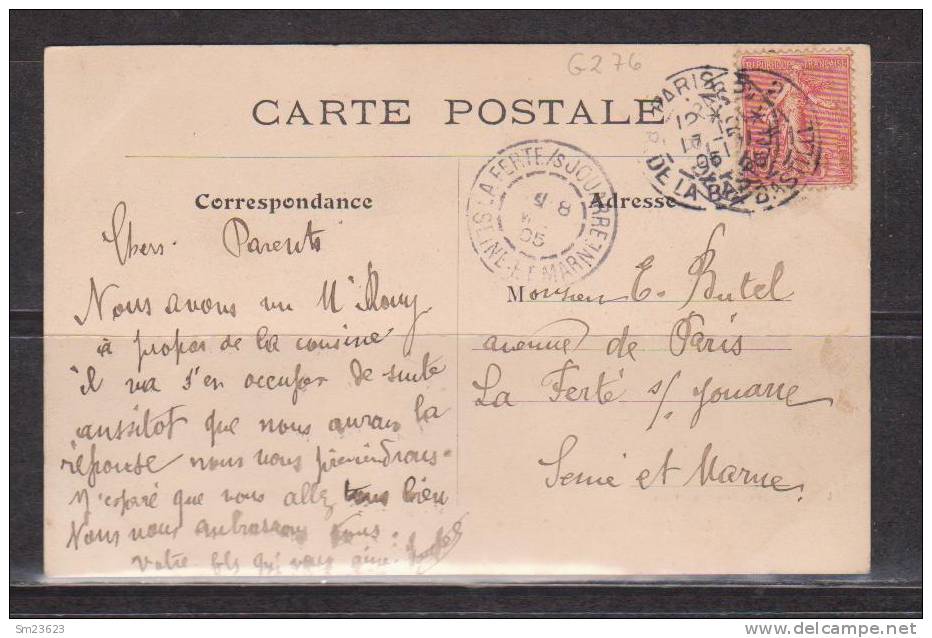 G276
CARTE POSTALE
REPUBLIQUE FRANÇAISE
PARIS
DE LA B
LA FERTE/S JOUARRE
8
05
SEINE-ET-MARNE
Correspondance
Adresse
Chers Parents
Nous avons vu Mr
à propos de la cousine
il va s'en occuper de suite
aussitot que nous aurons la
réponse nous vous préviendrons
J'espère que vous allez tous bien
Nous vous embrassons tous
votre fils qui vous aime
Monsieur E. Butel
avenue de Paris
La Ferté s/ Jouarre
Seine et Marne
Sm23623
www.delcampe.net